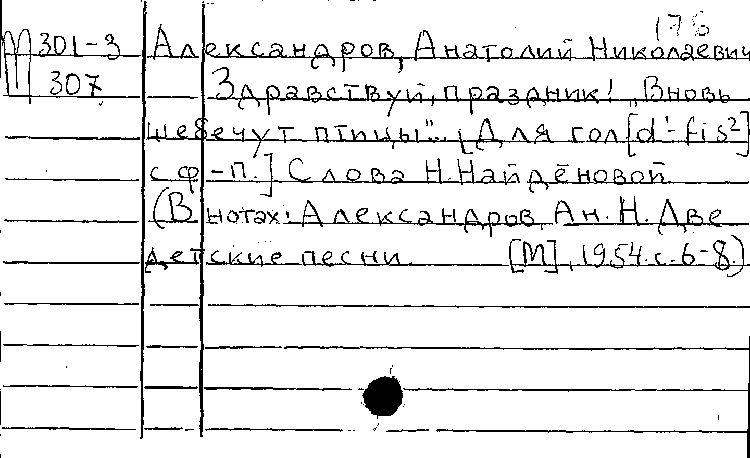 176
М 301-3 Александров, Анатолий Николаевич
307 Здравствуй, праздник! „Вновь
щебечут птицы"... [Для гол[d¹-fis²]
с ф-п.] Слова Н. Найдёновой
(В нотах: Александров, Ан. Н. Две
детские песни. [М], 1954. с. 6-8.)